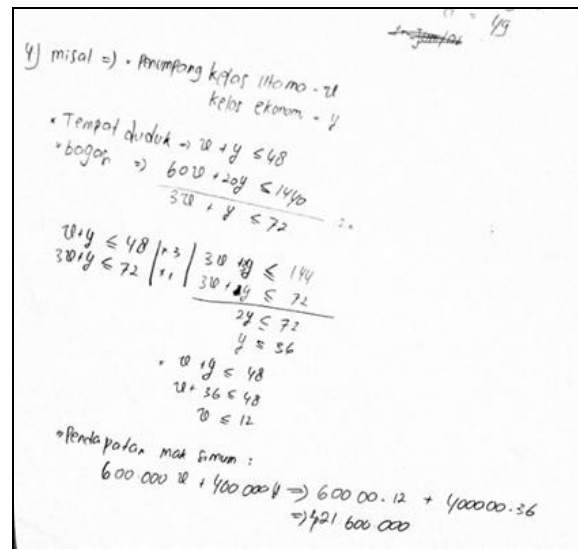 = 49
4) misal => • Penumpang kelas Utama = x
kelas ekonomi = y
• Tempat duduk => x + y ≤ 48
• bagasi => 60x + 20y ≤ 1440
3x + y ≤ 72
x+y ≤ 48 | x 3 | 3x + 3y ≤ 144
3x+y ≤ 72 | x 1 | 3x + y ≤ 72
2y ≤ 72
y ≤ 36
• x + y ≤ 48
x + 36 ≤ 48
x ≤ 12
• Pendapatan maksimum :
600.000 x + 400.000 y => 60000.12 + 400000.36
=> 421.600.000